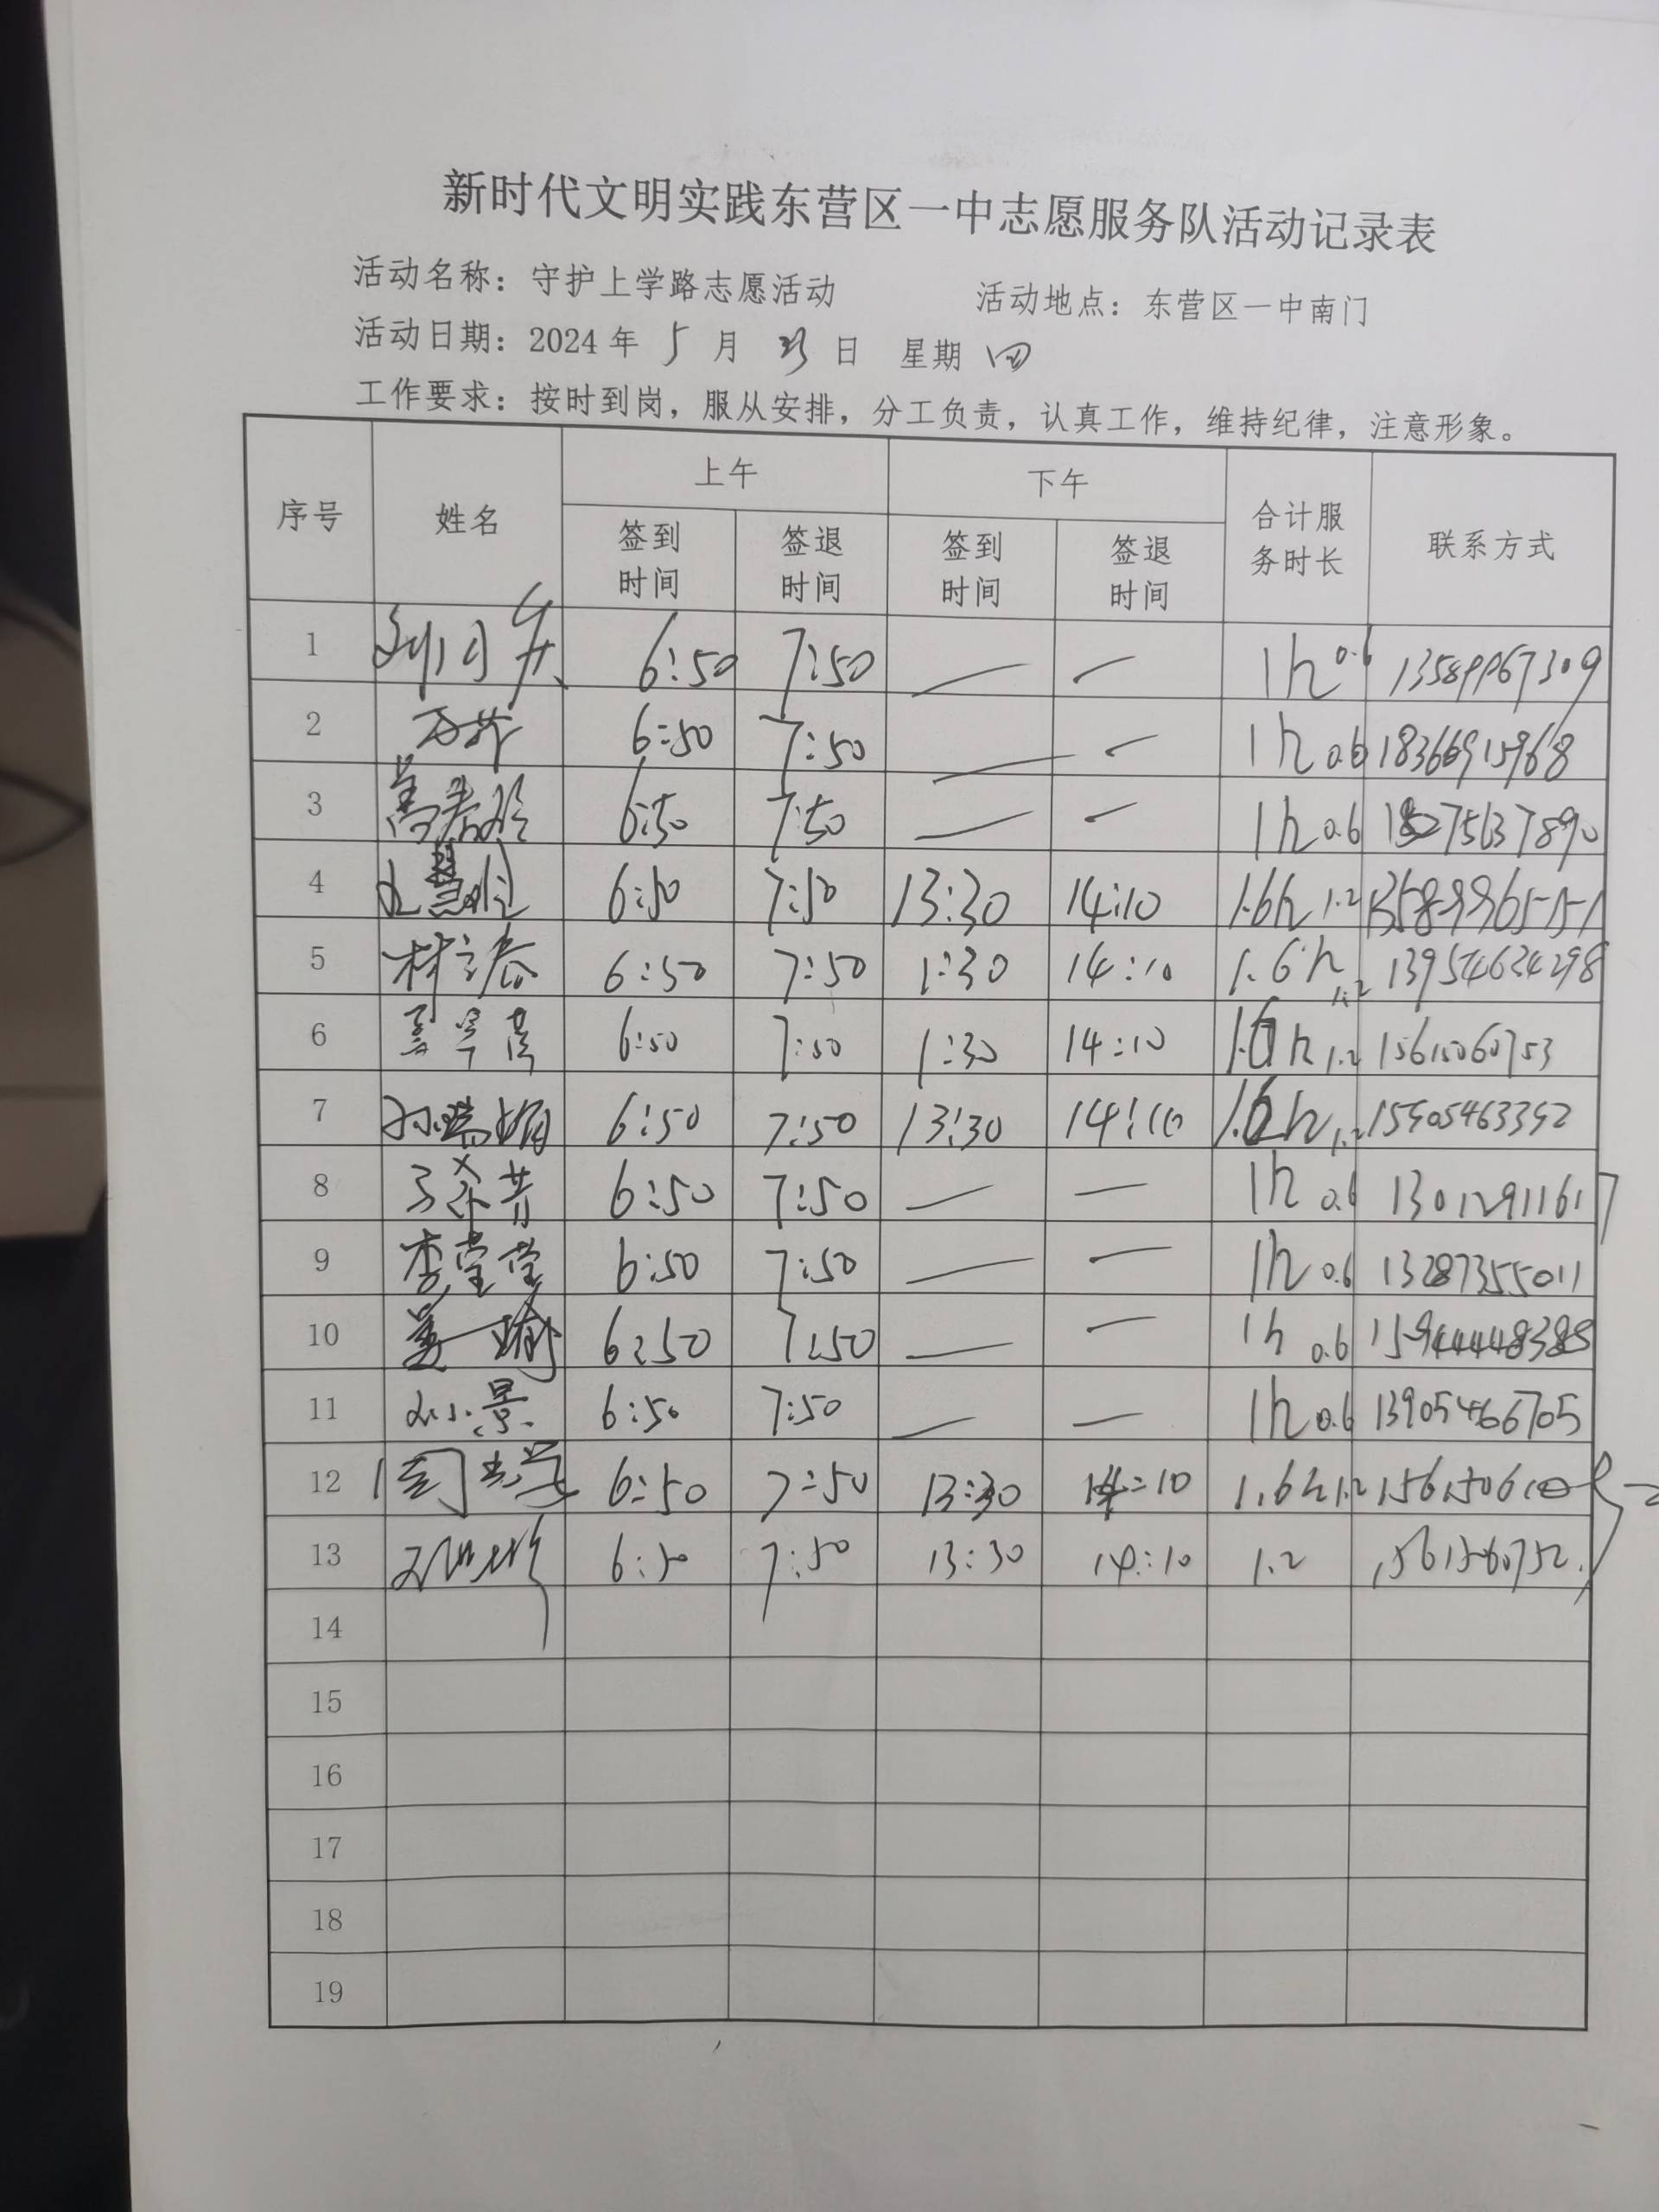 新时代文明实践东营区一中志愿服务队活动记录表
活动名称：守护上学路志愿活动 活动地点：东营区一中南门
活动日期：2024年 5 月 23 日 星期 四
工作要求：按时到岗，服从安排，分工负责，认真工作，维持纪律，注意形象。
序号 姓名 上午 下午 合计服务时长 联系方式
签到时间 签退时间 签到时间 签退时间
1 6:50 7:50 — — 1h 0.6 13589967309
2 6:50 7:50 — — 1h 0.6 18366915968
3 6:50 7:50 — — 1h 0.6 18275637890
4 6:50 7:50 13:30 14:10 1.6h 1.2
5 林立春 6:50 7:50 1:30 14:10 1.6h 1.2 13954624298
6 6:50 7:50 1:30 14:10 1.6h 1.2 15615060753
7 孙瑞娟 6:50 7:50 13:30 14:10 1.6h 1.2 15905463392
8 6:50 7:50 — — 1h 0.6 13012911617
9 李莹莹 6:50 7:50 — — 1h 0.6 13287355011
10 姜瑜 6:50 7:50 — — 1h 0.6
11 刘小景 6:50 7:50 — — 1h 0.6 13905466705
12 6:50 7:50 13:30 14:10 1.6h 1.2
13 6:50 7:50 13:30 14:10 1.2
14
15
16
17
18
19